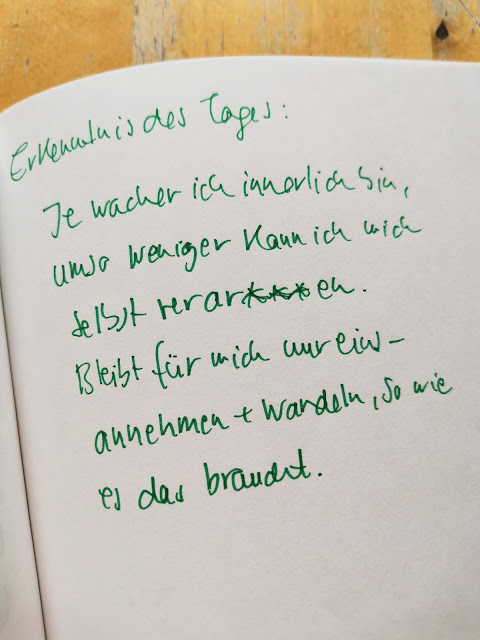 Erkenntnis des Tages:
Je wacher ich innerlich bin,
umso weniger kann ich mich
selbst verar***en.
Bleibt für mich nur eins -
annehmen + wandeln, so wie
es das braucht.